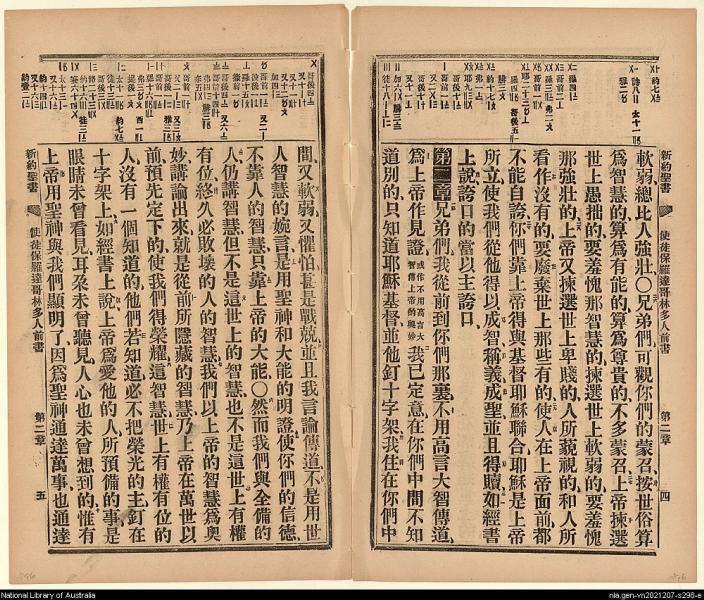 新約聖書
使徒保羅達哥林多人前書
第二章
四
軟弱總比人強壯〇兄弟們可觀你們的蒙召按世俗算
爲智慧的算爲有能的算爲尊貴的不多蒙召上帝揀選
世上愚拙的要羞愧那智慧的揀選世上軟弱的要羞愧
那強壯的上帝又揀選世上卑賤的人所藐視的和人所
看作沒有的要廢棄世上那些有的使人在上帝面前都
不能自誇你們靠上帝得與基督耶穌聯合耶穌是上帝
所立使我們從他得以成智稱義成聖並且得贖如經書
上說誇口的當以主誇口
第二章兄弟們我從前到你們那裏不用高言大智傳道
爲上帝作見證或作不用高言大智傳上帝的奧妙我已定意在你們中間不知
道別的只知道耶穌基督並他釘十字架我住在你們中
間又軟弱又懼怕甚是戰兢並且我言論傳道不是用世
人智慧的婉言是用聖神和大能的明證使你們的信德
不靠人的智慧只靠上帝的大能〇然而我們與全備的
人仍講智慧但不是這世上的智慧也不是這世上有權
有位終久必敗壞的人的智慧我們以上帝的智慧爲奧
妙講論出來就是從前所隱藏的智慧乃上帝在萬世以
前預先定下的使我們得榮耀這智慧世上有權有位的
人沒有一個知道的他們若知道必不把榮光的主釘在
十字架上如經書上說上帝爲愛他的人所預備的事是
眼睛未曾看見耳朶未曾聽見人心也未曾想到的惟有
上帝用聖神與我們顯明了因爲聖神通達萬事也通達
新約聖書
使徒保羅達哥林多人前書
第二章
五
National Library of Australia
nla.gen-vn2021207-s298-e